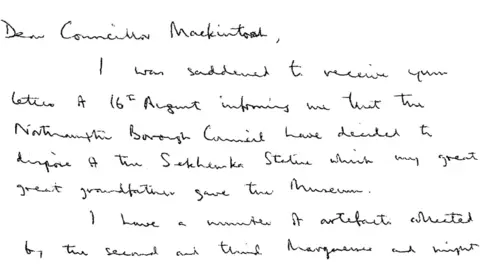 Dear Councillor Mackintosh,
I was saddened to receive your
letter of 16th August informing me that the
Northampton Borough Council have decided to
dispose of the Sekhemka Statue which my great
great grandfather gave the Museum.
I have a number of artefacts collected
by the second and third Marquesses and might